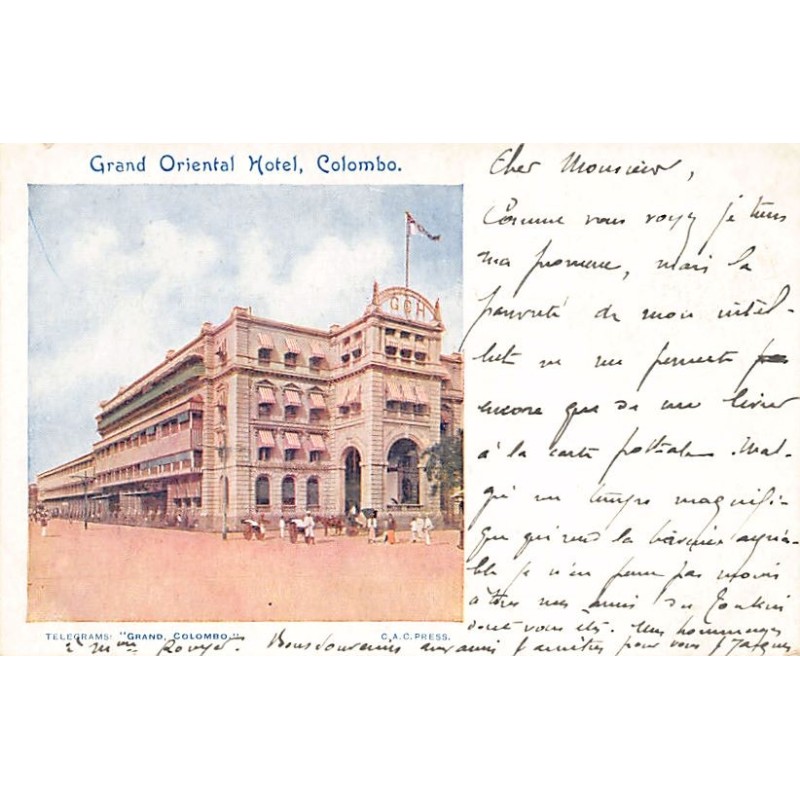 Grand Oriental Hotel, Colombo.
GOH
TELEGRAMS: "GRAND, COLOMBO."
C.A.C. PRESS.
Cher Monsieur,
Comme vous voyez je tiens
ma promesse, mais la
pauvreté de mon intel-
lect ne me permet
encore que de me livrer
à la carte postale. Mal-
gré un temps magnifi-
que qui rend la agréa-
ble je n'en pas moins
à mes amis du Tonkin
dont vous êtes. Mes hommages
à Mme Bons souvenirs aux amis & amitiés pour vous Jacques